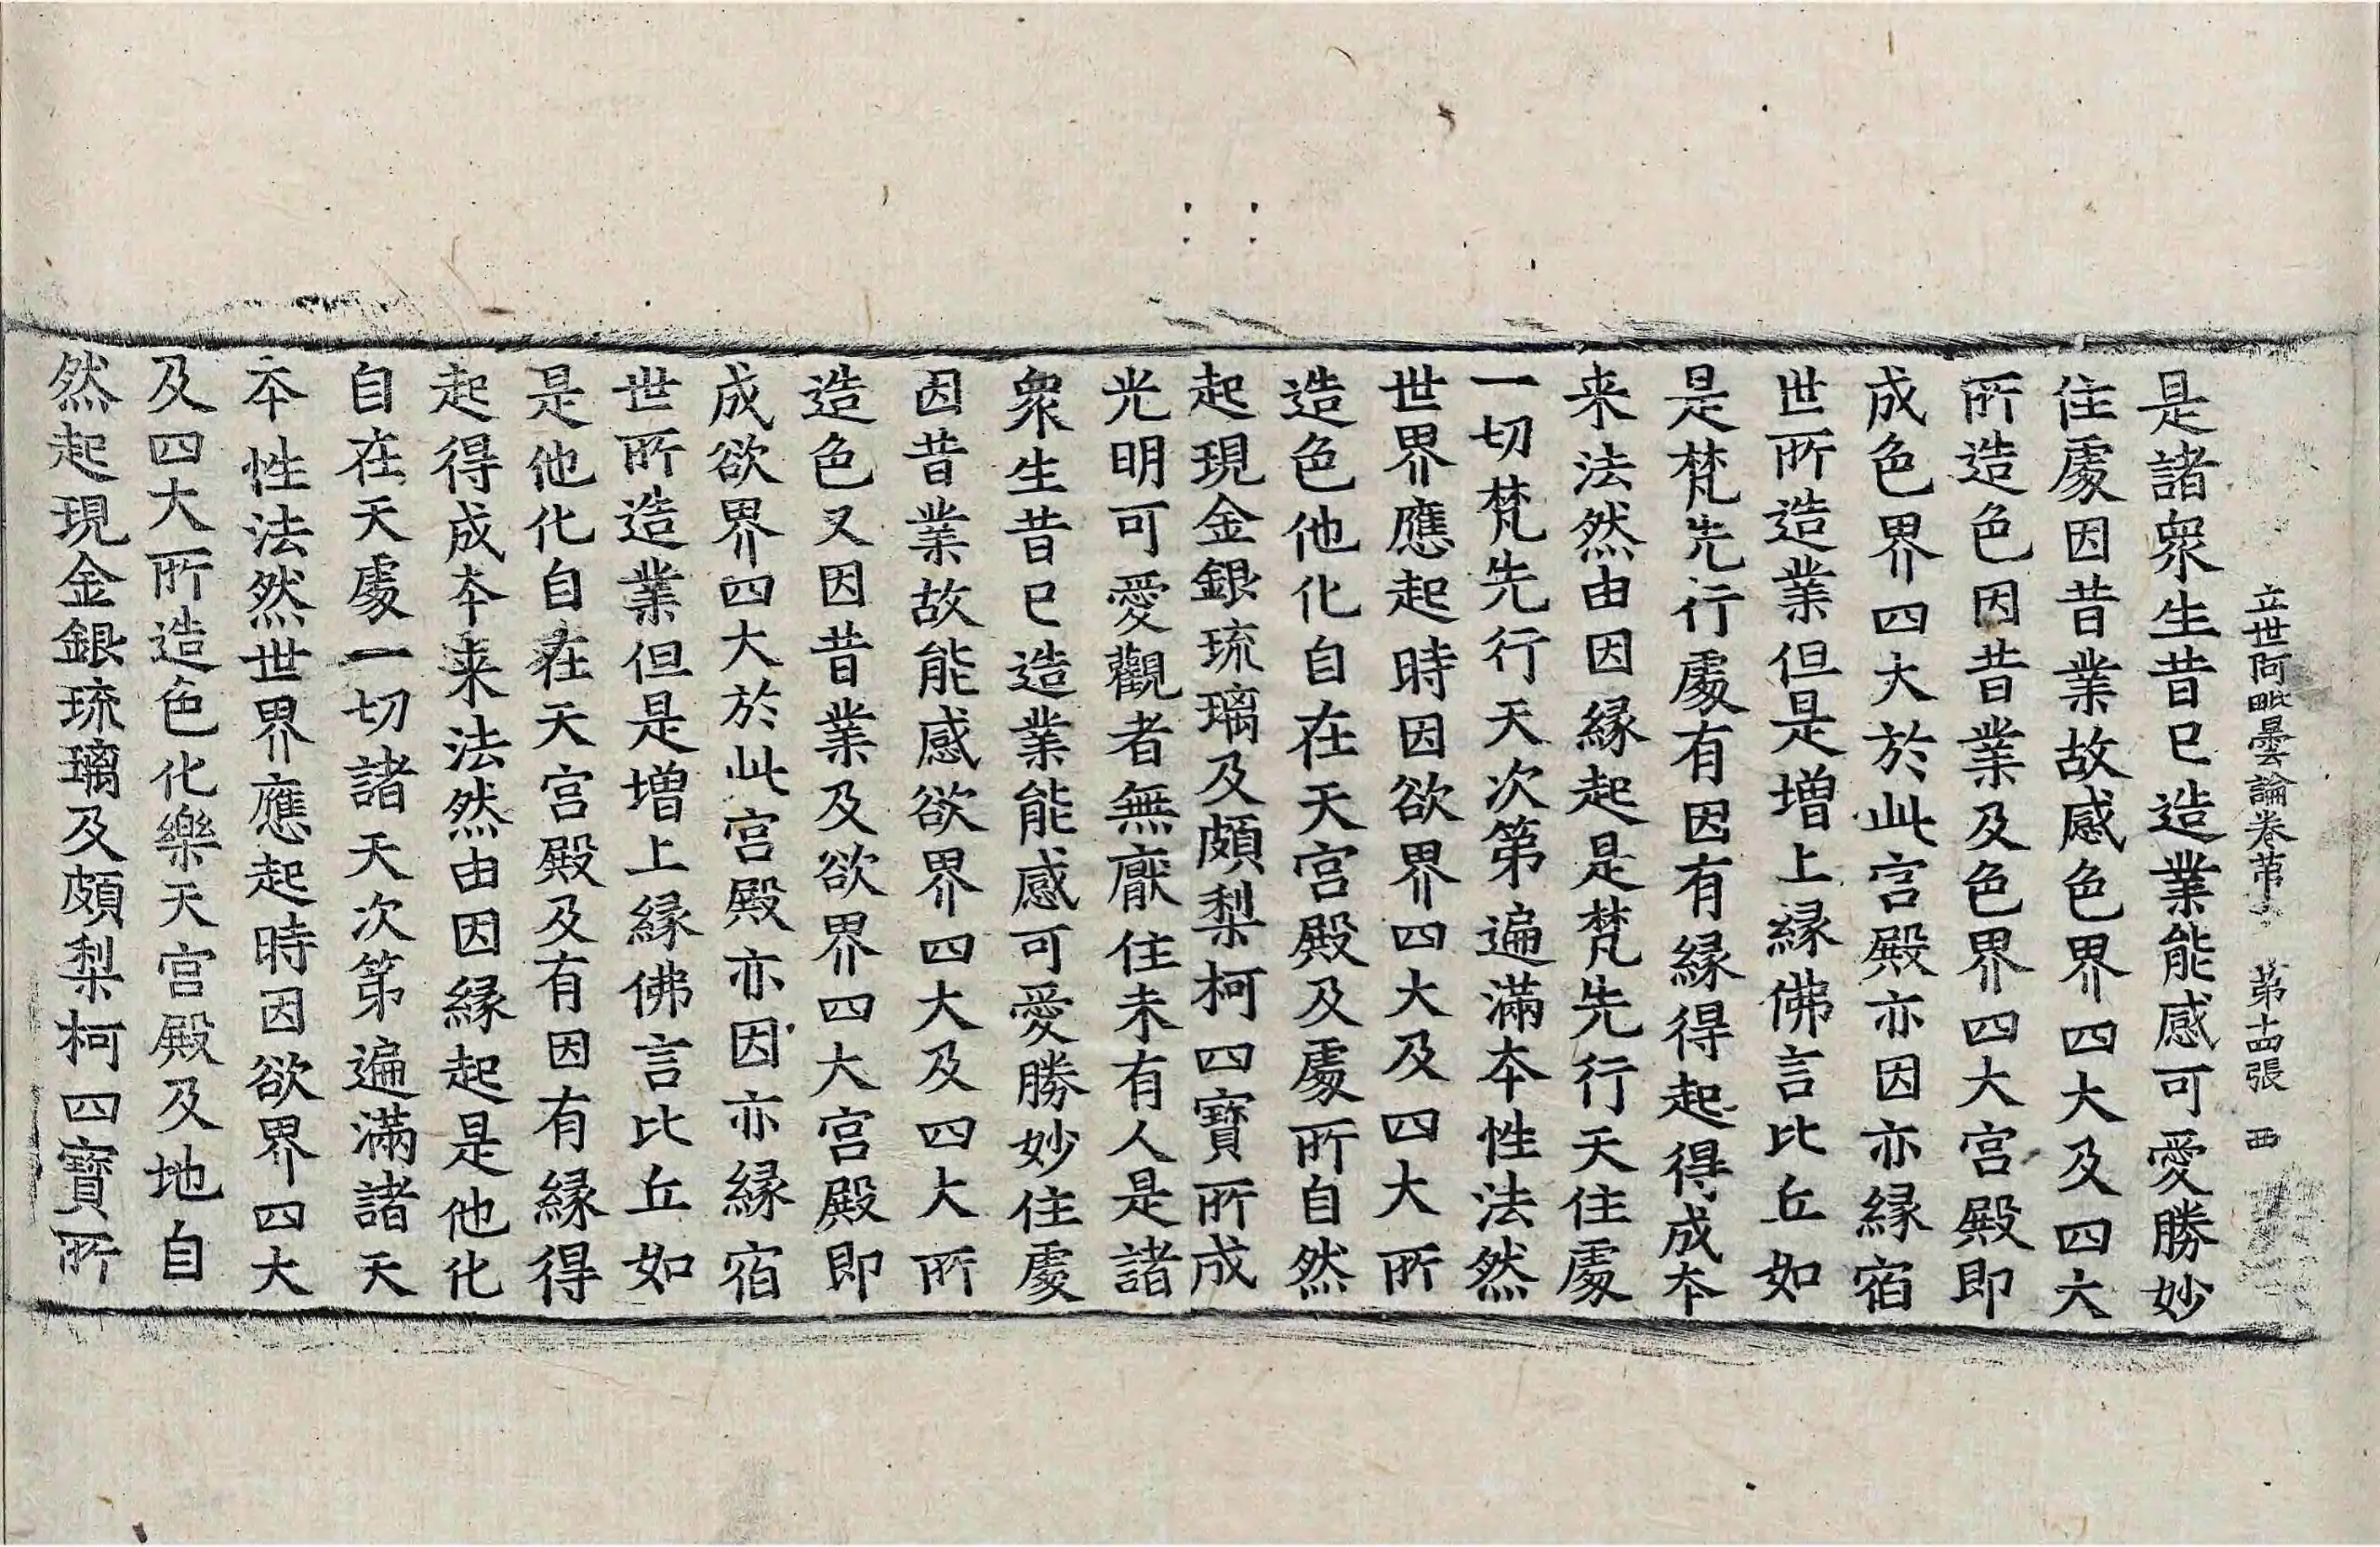 立世阿毗曇論卷苐十　苐十四張　西
是諸衆生昔已造業能感可愛勝妙
住處因昔業故感色界四大及四大
所造色因昔業及色界四大宫殿即
成色界四大於此宫殿亦因亦緣宿
世所造業但是增上緣佛言比丘如
是梵先行處有因有緣得起得成本
来法然由因緣起是梵先行天住處
一切梵先行天次苐遍滿本性法然
世界應起時因欲界四大及四大所
造色他化自在天宫殿及處所自然
起現金銀琉璃及頗梨柯四寶所成
光明可愛觀者無厭住未有人是諸
衆生昔已造業能感可愛勝妙住處
因昔業故能感欲界四大及四大所
造色又因昔業及欲界四大宫殿即
成欲界四大於此宫殿亦因亦緣宿
世所造業但是增上緣佛言比丘如
是他化自在天宫殿及有因有緣得
起得成本来法然由因緣起是他化
自在天處一切諸天次苐遍滿諸天
本性法然世界應起時因欲界四大
及四大所造色化樂天宫殿及地自
然起現金銀琉璃及頗梨柯四寶所